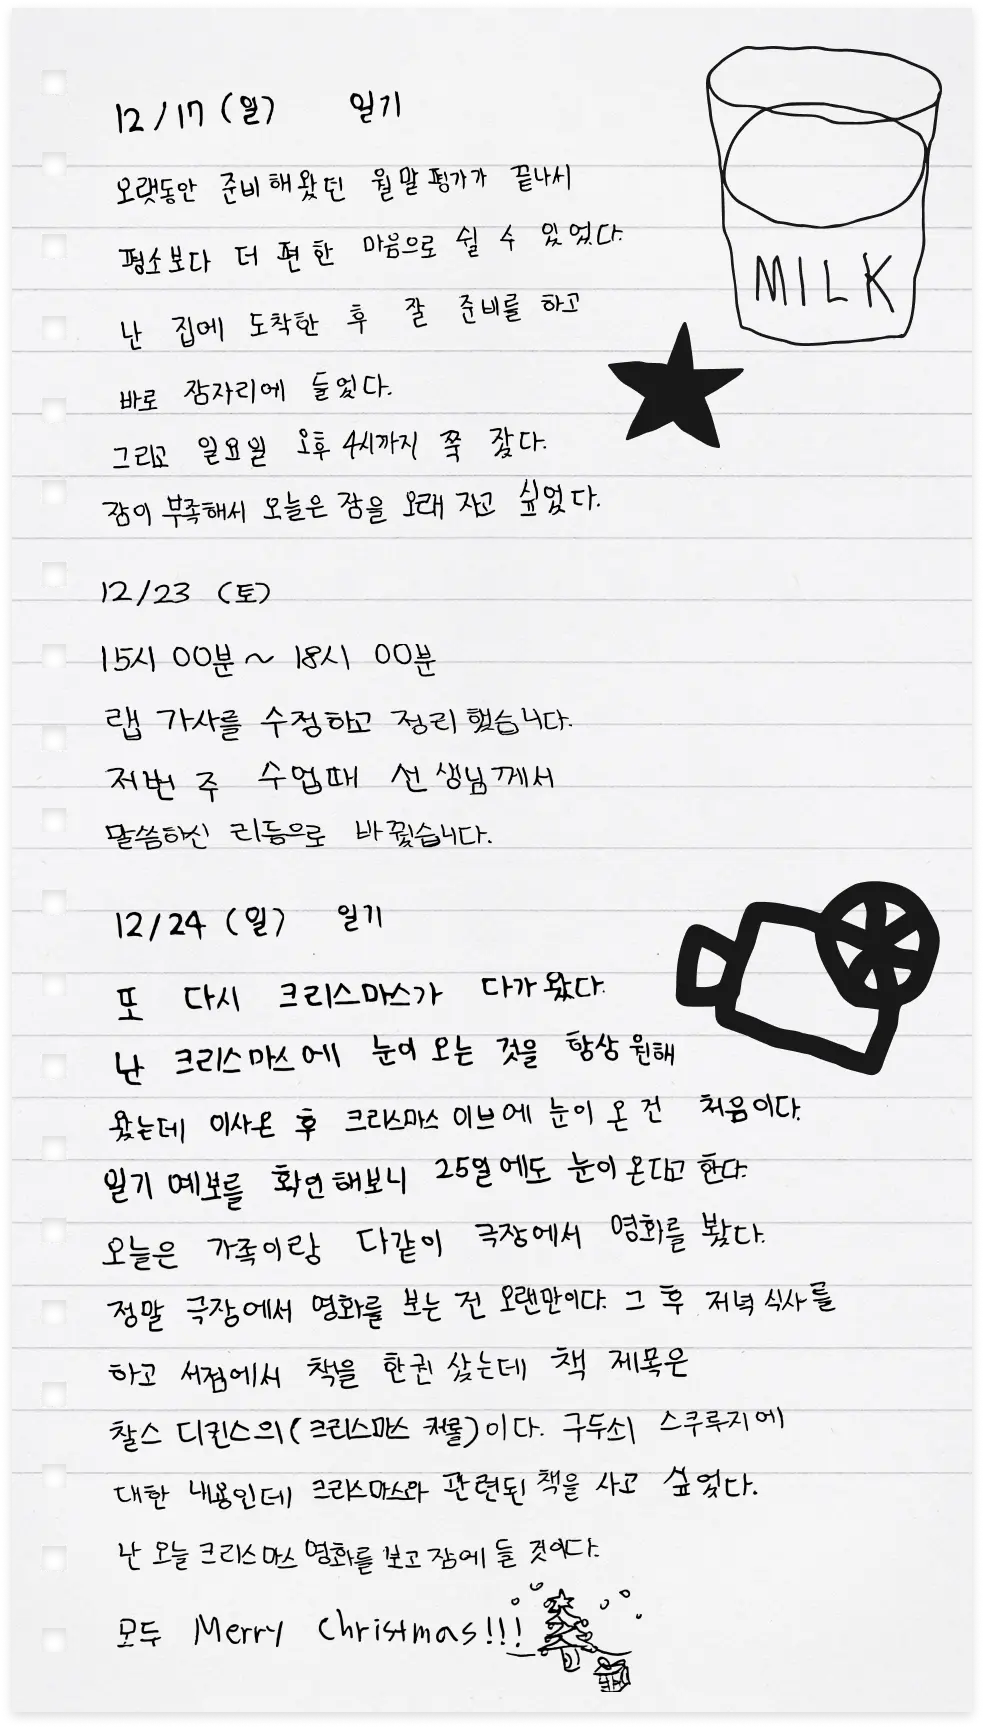 12/17 (일) 일기
오랫동안 준비해왔던 월말평가가 끝나서
평소보다 더 편한 마음으로 쉴 수 있었다.
난 집에 도착한 후 잘 준비를 하고
바로 잠자리에 들었다.
그리고 일요일 오후 4시까지 쭉 잤다.
잠이 부족해서 오늘은 잠을 오래 자고 싶었다.
MILK
12/23 (토)
15시 00분~ 18시 00분
랩 가사를 수정하고 정리했습니다.
저번 주 수업때 선생님께서
말씀하신 리듬으로 바꿨습니다.
12/24 (일) 일기
또 다시 크리스마스가 다가왔다.
난 크리스마스에 눈이 오는 것을 항상 원해
왔는데 이사온 후 크리스마스 이브에 눈이 온 건 처음이다.
일기 예보를 확인해보니 25일에도 눈이 온다고 한다.
오늘은 가족이랑 다같이 극장에서 영화를 봤다.
정말 극장에서 영화를 보는 건 오랜만이다. 그 후 저녁 식사를
하고 서점에서 책을 한권 샀는데 책 제목은
찰스 디킨스의 (크리스마스 캐롤)이다. 구두쇠 스쿠루지에
대한 내용인데 크리스마스와 관련된 책을 사고 싶었다.
난 오늘 크리스마스 영화를 보고 잠에 들 것이다.
모두 Merry Christmas!!!